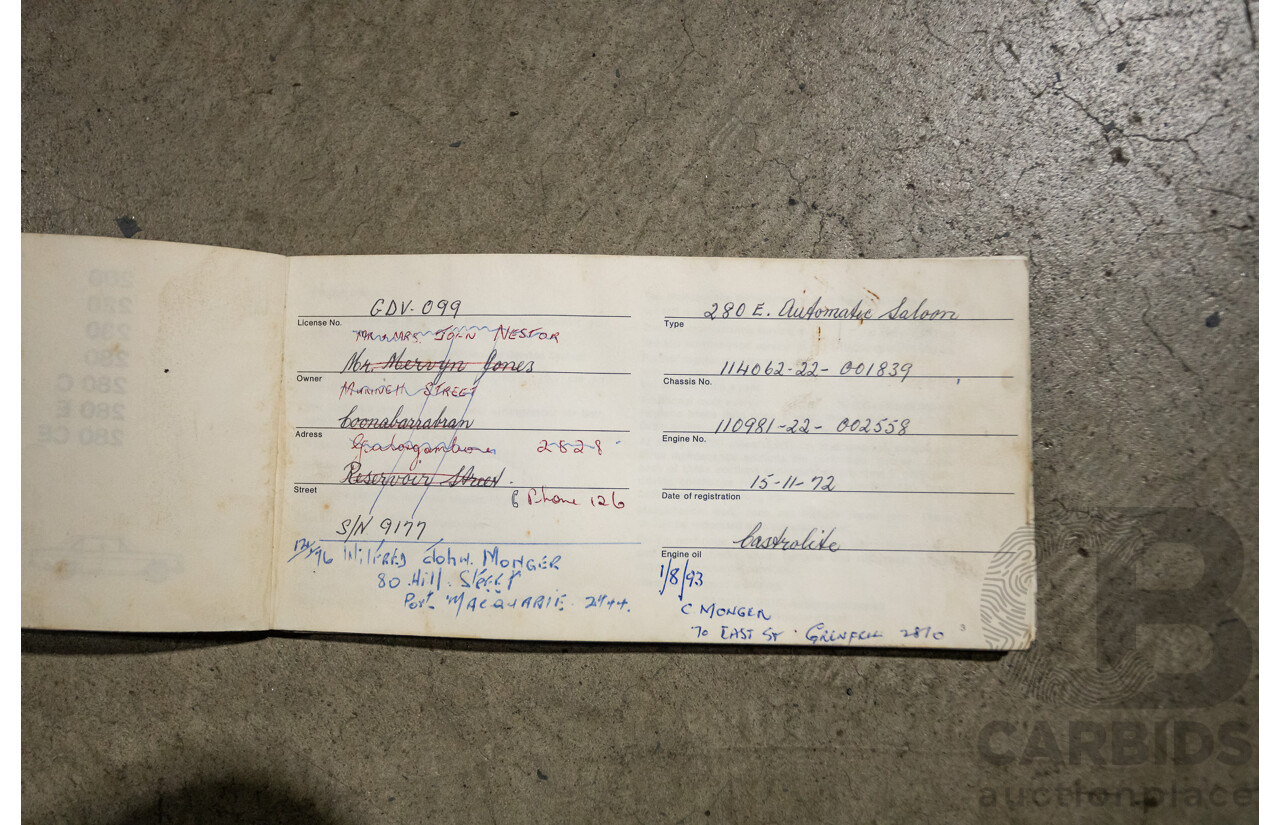 GDV-099
License No.
MR & MRS. JOHN NESTOR
Mr. Mervyn Jones
Owner
STREET
Coonabarrabran
Adress
2828
Reservoir Street.
Street
Phone 126
S/N 9177
WILFRED John. MONGER
80 Hill. Street
Port MACQUARIE. 2444.
280 E. Automatic Saloon
Type
114062-22-001839
Chassis No.
110981-22-002558
Engine No.
15-11-72
Date of registration
Castrolite
Engine oil
1/8/93
C MONGER
70 EAST ST. GRENFELL 2810
200
220
230
280
280 C
280 E
280 CE
B
CARBIDS
auctionplace